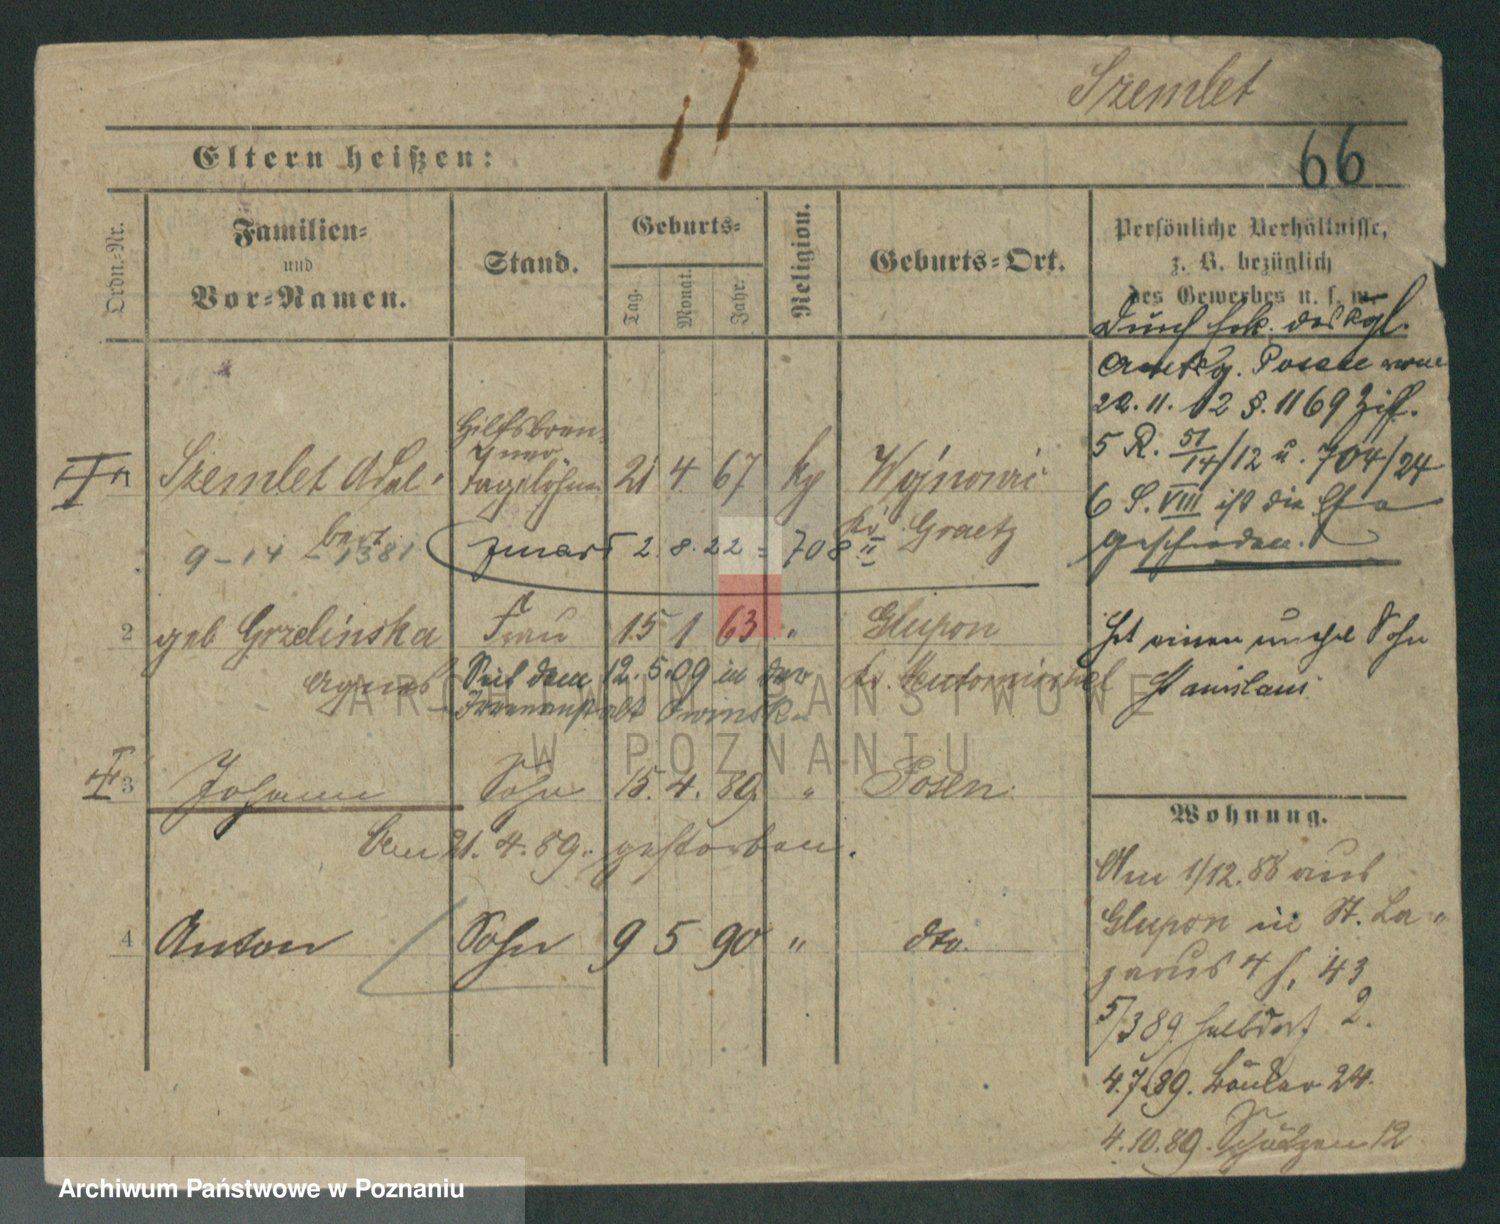 Szemlet
66
Eltern heißen:
Ordn.-Nr.
Familien-
und
Vor-Namen.
Stand.
Geburts-
Tag.
Monat.
Jahr.
Religion.
Geburts-Ort.
Persönliche Verhältnisse,
z. B. bezüglich
des Gewerbes u. s. w.
Durch Erk. des Kgl.
Amtsg. Posen vom
22.11.12 §. 1169 Ziff.
5 R. 51/14/12 u. 704/24
6 S. VIII ist die Ehe
geschieden.
Szemlet Adal-
bert
Tagelöhner 21 4 67 Kr
9-14-1381
zmarł 2.8.22 = 708 II
Kr. Graetz
2 geb Grzelinska Frau 15 1 63 " Glupon
Agnes
Seit dem 12.5.09 in der
Irrenanstalt Owinsk
Hat einen unehel Sohn
Stanislaus
3 Johann Sohn 15. 4. 89 " Posen
Am 21. 4. 89. gestorben.
4 Anton Sohn 9 5 90 " dto.
Wohnung.
Am 1/12.88 aus
Glupon in St. La-
zarus 4
5/3 89 Halbdorf 2.
4.7.89. Bäcker 24.
4.10.89. Schützen 12
ARCHIWUM PAŃSTWOWE
W POZNANIU
Archiwum Państwowe w Poznaniu